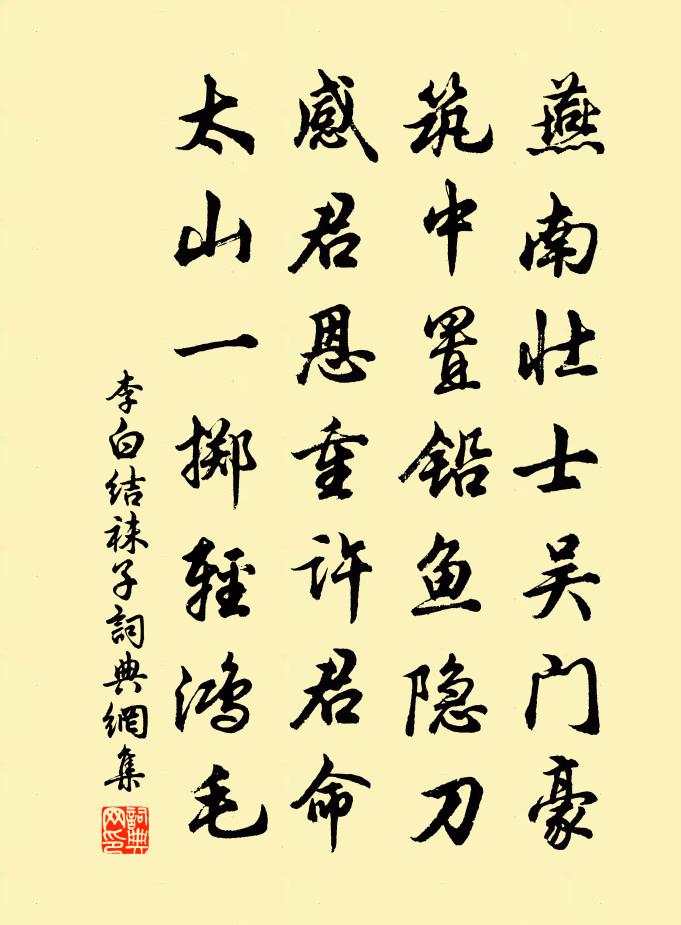 燕南壮士吴门豪
筑中置铅鱼隐刀
感君恩重许君命
太山一掷輕鸿毛
李白结袜子詞典網集
詞典网印